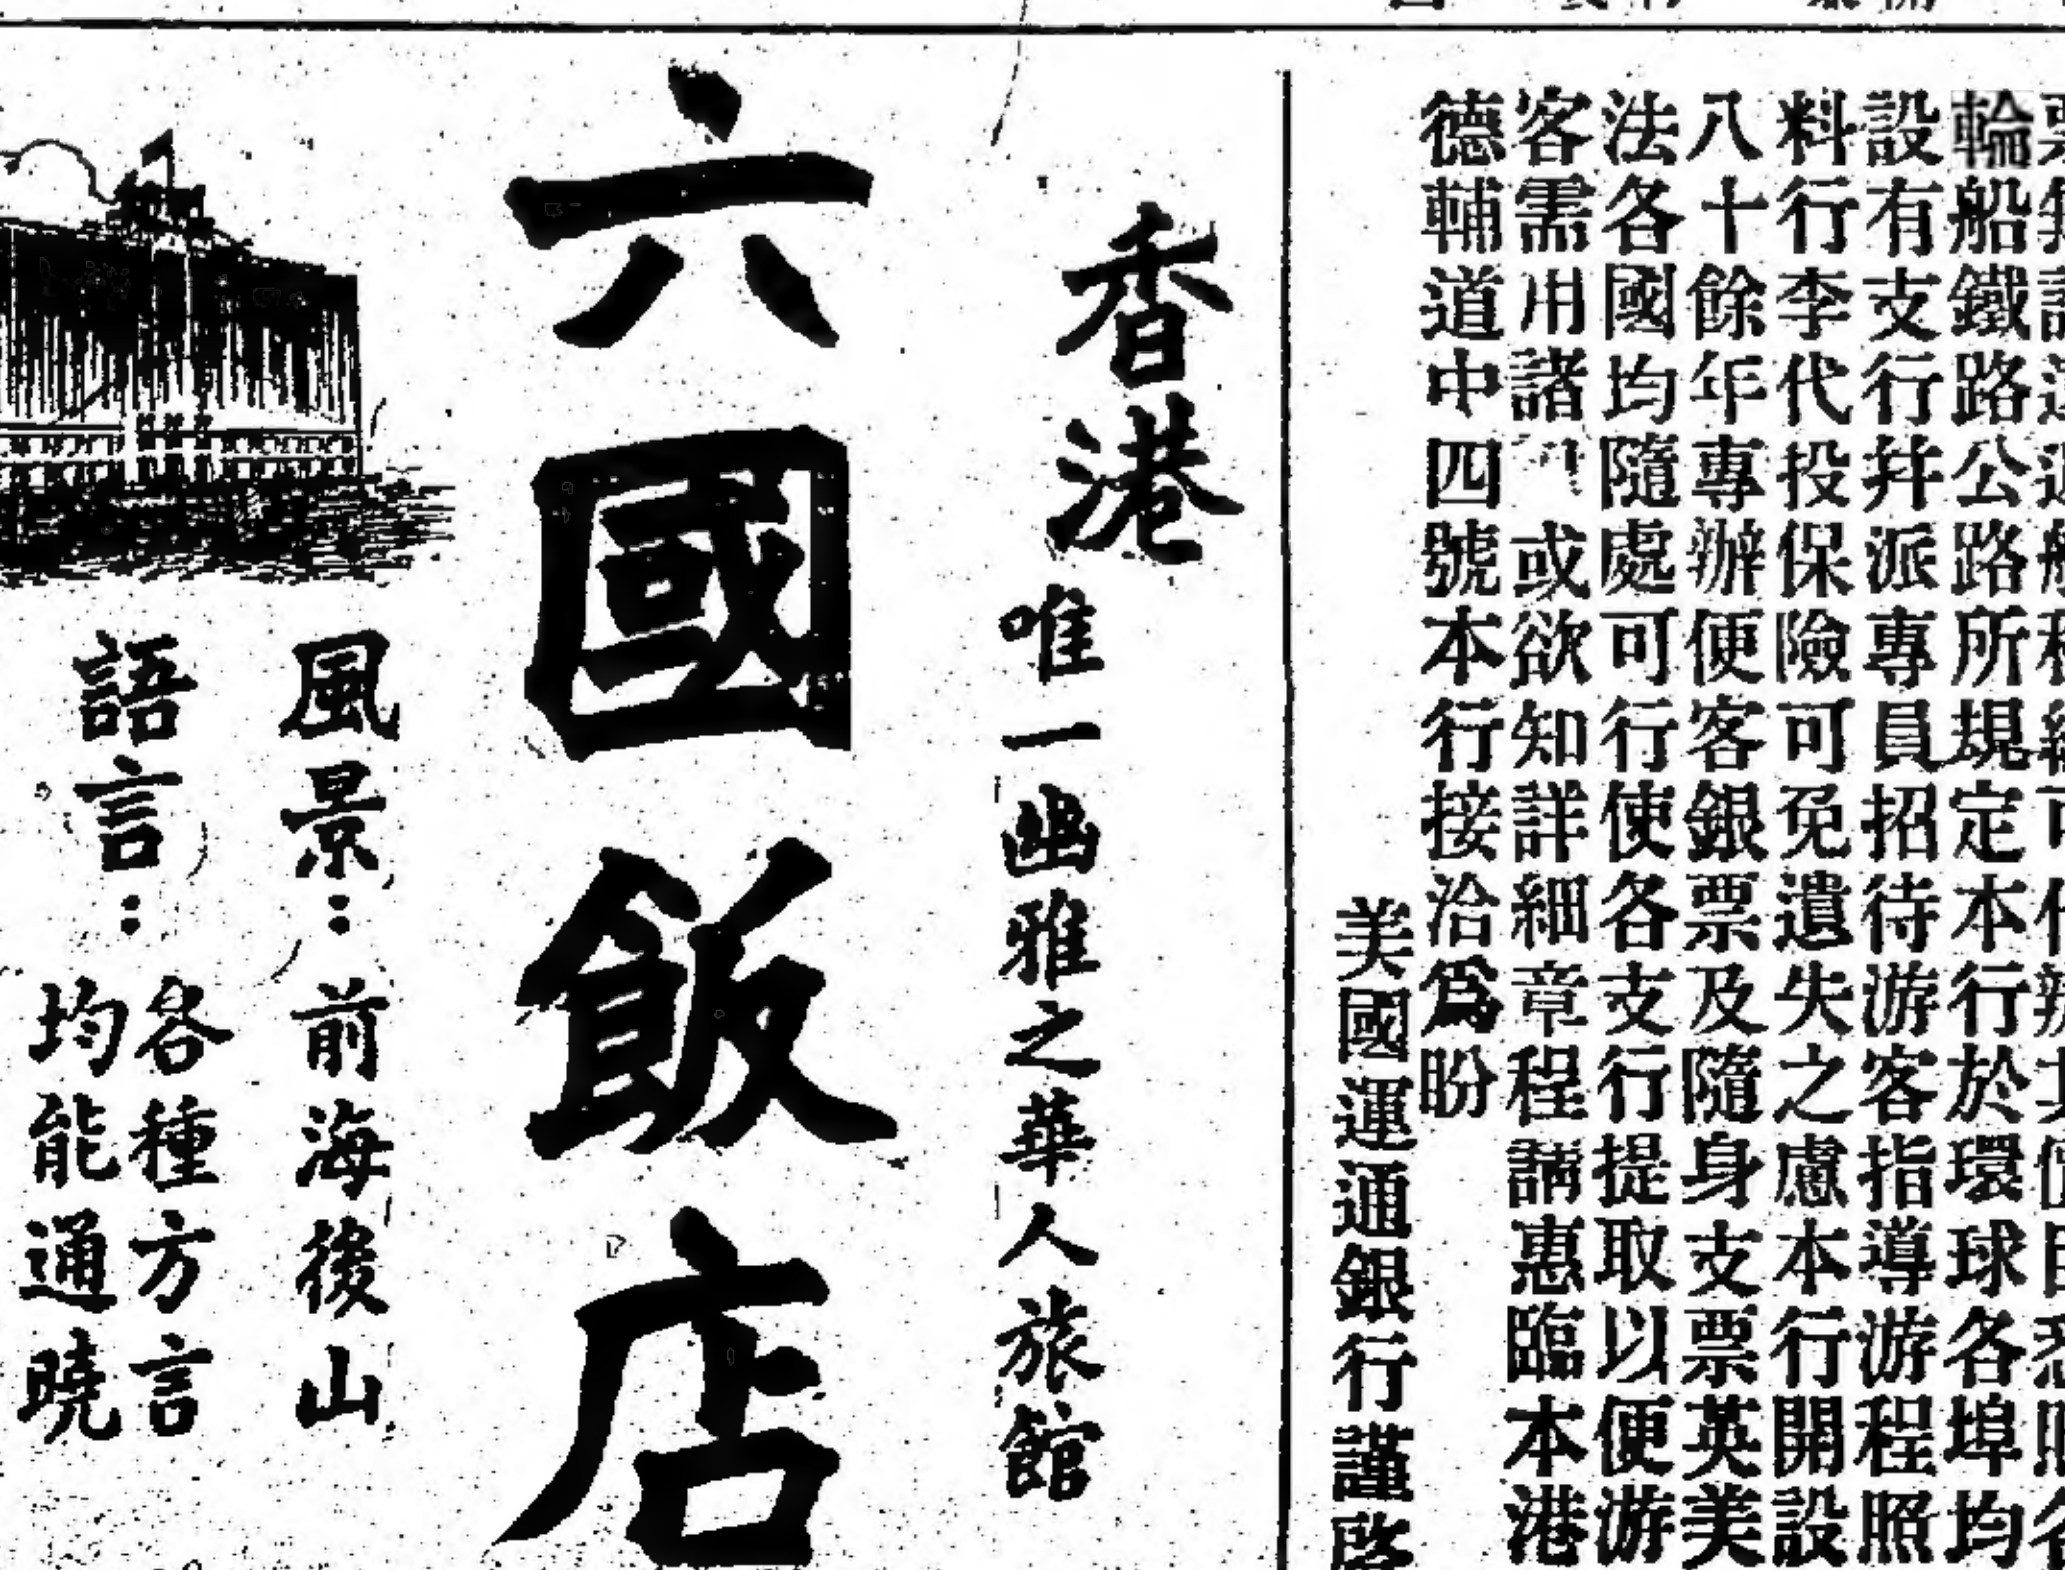 輪船鐵路公路所規定本行於環球各埠均
設有支行并派專員招待游客指導游程照
料行李代投保險可免遺失之慮本行開設
八十餘年專辦便客銀票及隨身支票英美
法各國均隨處可行使各支行提取以便游
客需用諸 或欲知詳細章程請惠臨本港
德輔道中四號本行接洽爲盼
美國運通銀行謹啓
香港
唯一幽雅之華人旅館
六國飯店
風景：前海後山
語言：各種方言
均能通曉